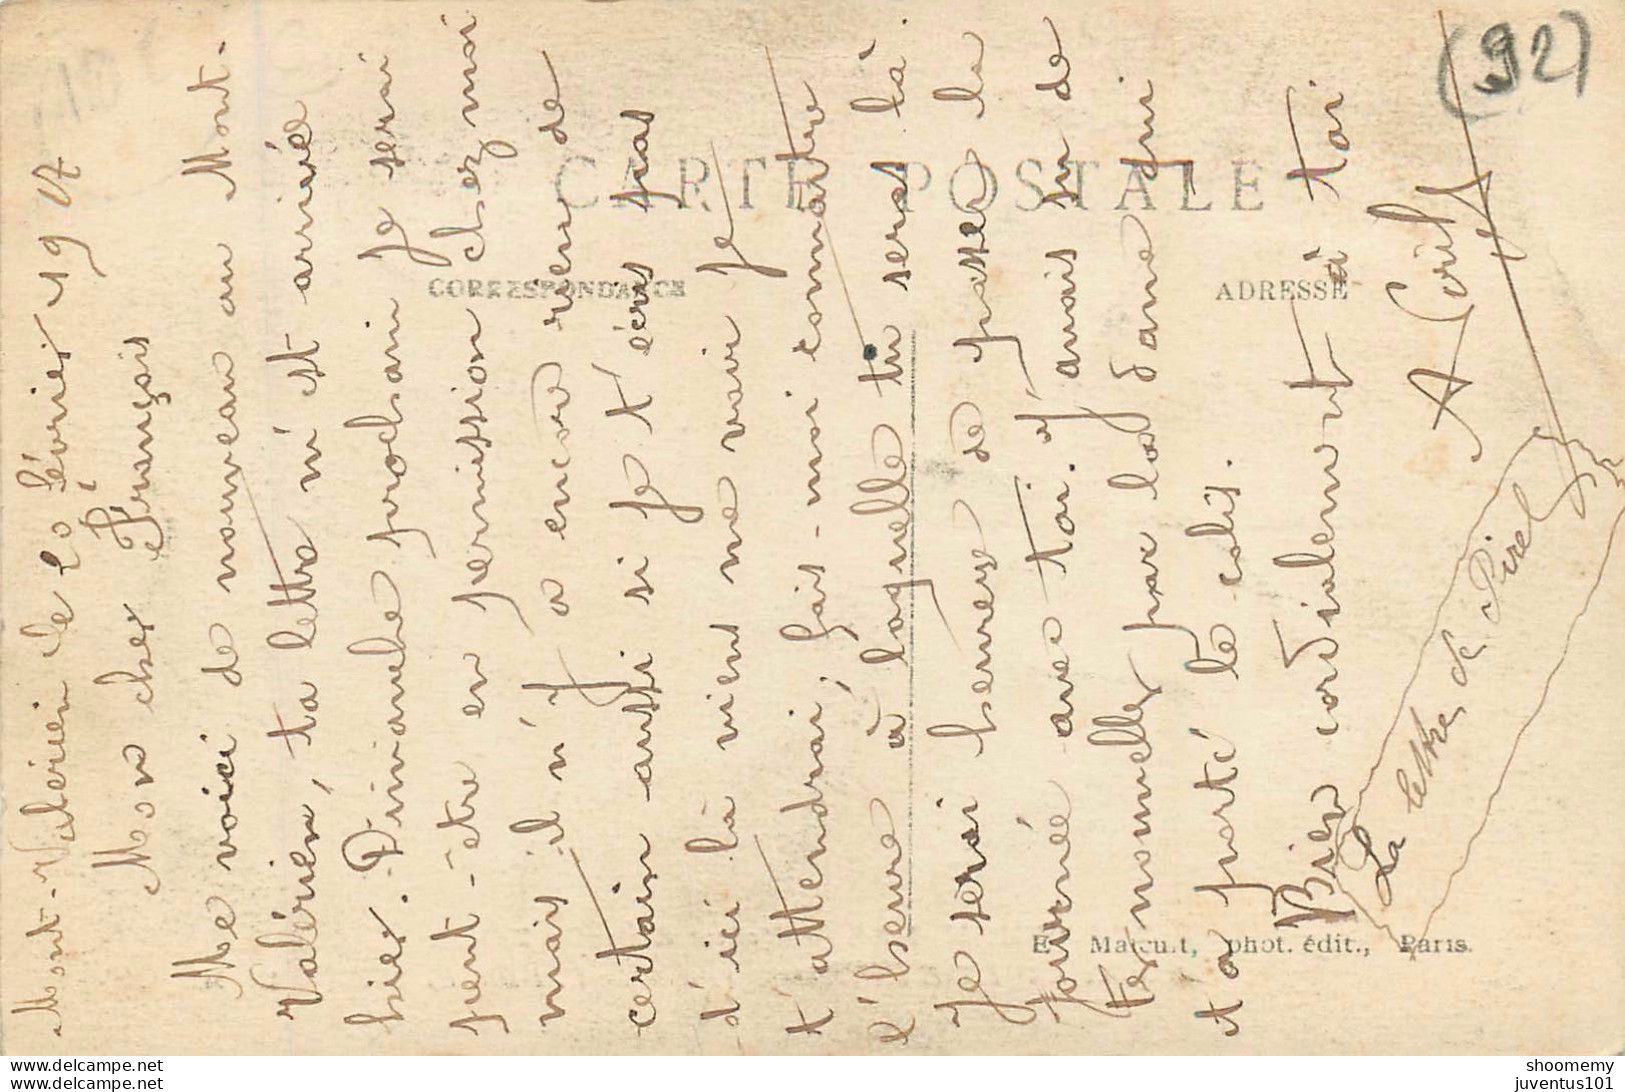 Mont-Valérien le 20 février 1917
Mon cher François
Me voici de nouveau au Mont-
Valérien, ta lettre m'est arrivée
hier. Dimanche prochain je serai
peut-être en permission chez moi
mais il n'y a encore rien de
certain aussi si je t'écris pas
d'ici là viens me voir je
t'attendrai; fais-moi connaitre
l'heure à laquelle tu seras là.
Je serai heureux de passer la
journée avec toi. J'avais su de
tes nouvelles par la dame qui
t'a porté le colis.
Bien cordialement à toi
A
La lettre de Pirel
(92)
CARTE POSTALE
CORRESPONDANCE
ADRESSE
phot. édit., Paris.
shoomemy
juventus101